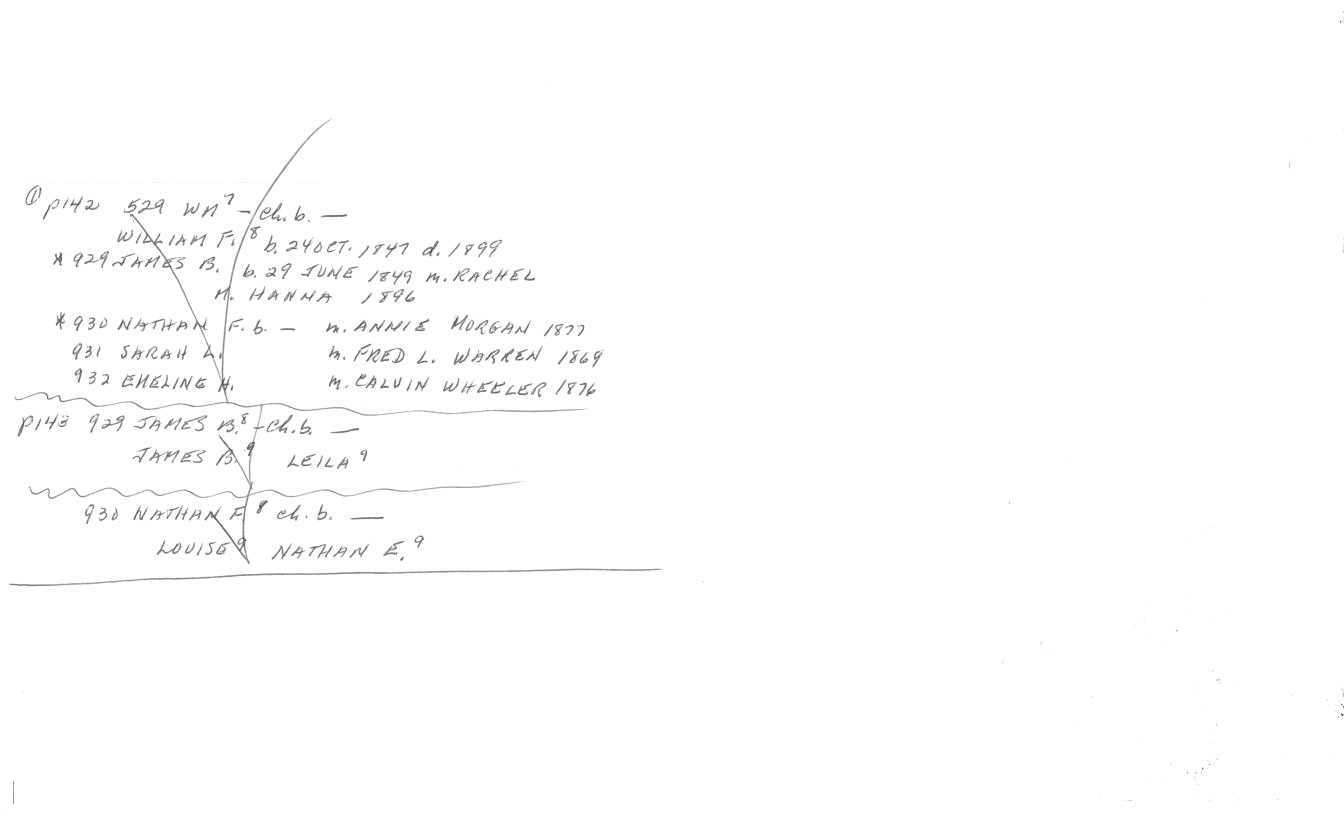 ① P142 529 WM⁷ - Ch. b. —
WILLIAM F.⁸ b. 24 OCT. 1847 d. 1899
* 929 JAMES B. b. 29 JUNE 1849 m. RACHEL
M. HANNA 1896
* 930 NATHAN F. b. — m. ANNIE MORGAN 1877
931 SARAH L. m. FRED L. WARREN 1869
932 EMELINE H. m. CALVIN WHEELER 1876
P143 929 JAMES B.⁸ - Ch. b. —
JAMES B.⁹ LEILA⁹
930 NATHAN F⁸ ch. b. —
LOUISE⁹ NATHAN E.⁹